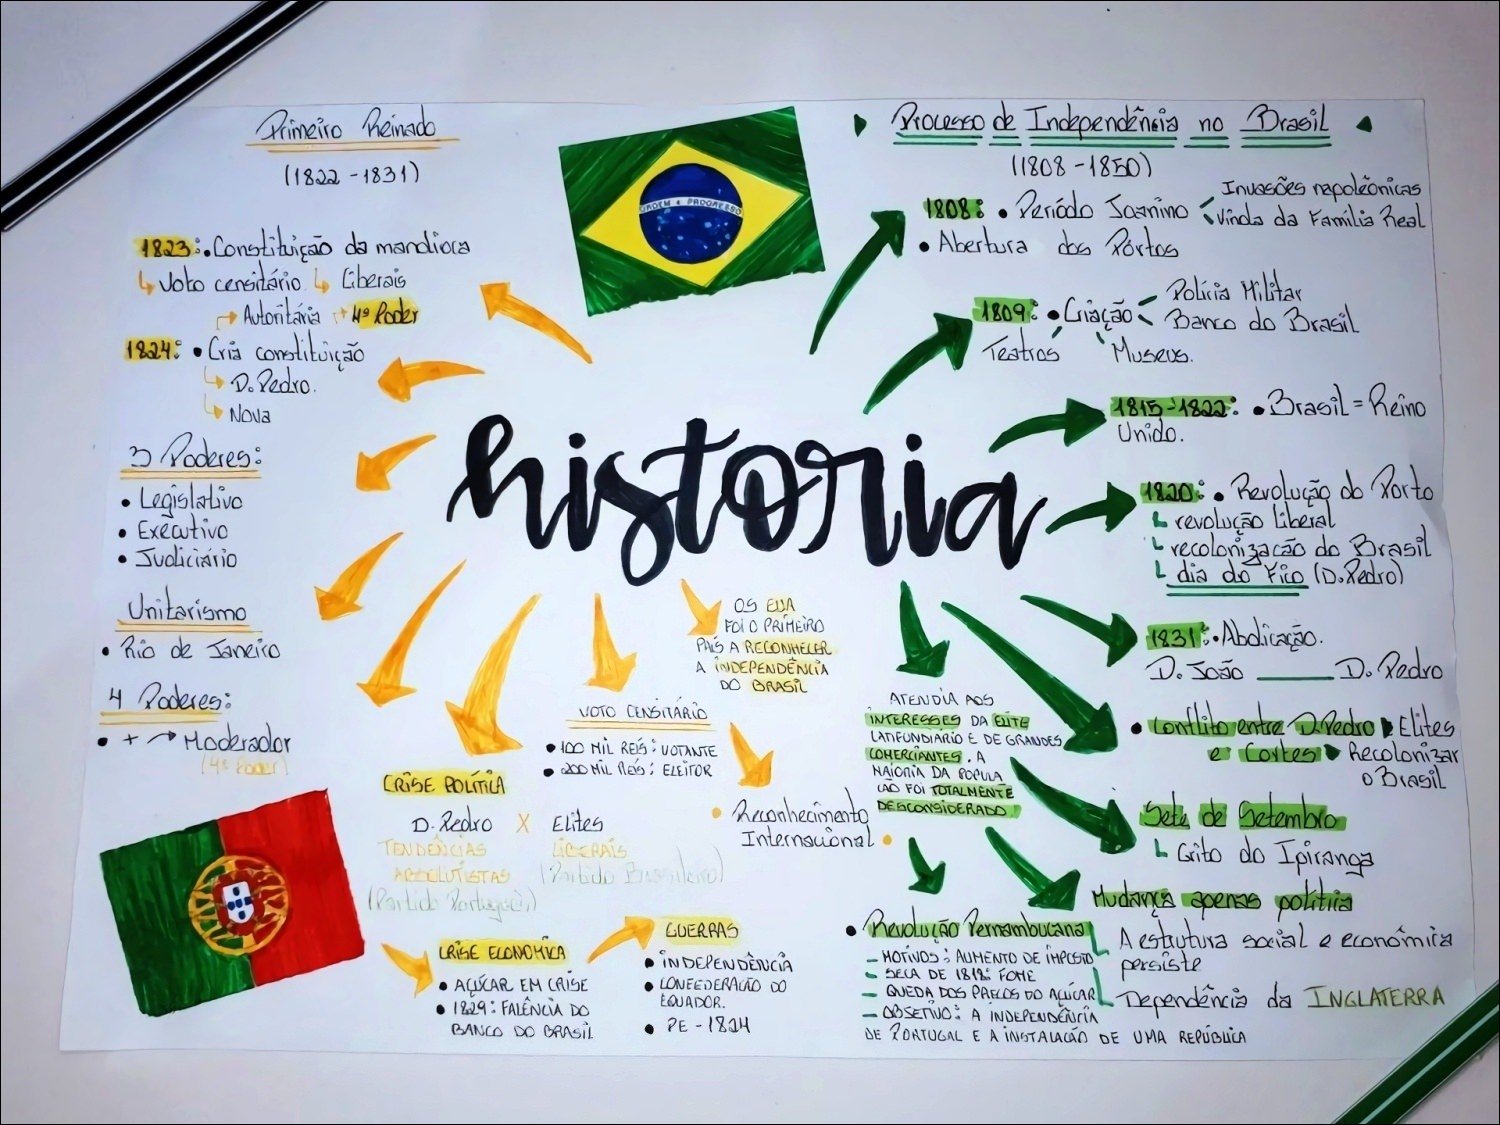 Primeiro Reinado
(1822 - 1831)
1823: • Constituição da mandioca
Voto censitário Liberais
Autoritária 4º Poder
1824: • Cria constituição
D. Pedro.
Nova
3 Poderes:
• Legislativo
• Executivo
• Judiciário
Unitarismo
• Rio de Janeiro
4 Poderes:
• + → Moderador
(4º Poder)
ORDEM E PROGRESSO
historia
Processo de Independência no Brasil
(1808 - 1850)
1808: • Período Joanino < Invasões napoleônicas
Vinda da Família Real
• Abertura dos Pórtos
1809: • Criação Polícia Militar
Banco do Brasil
Teatros Museus.
1815-1822: • Brasil = Reino
Unido.
1820: • Revolução do Porto
revolução liberal
recolonização do Brasil
dia do Fico (D. Pedro)
1831: • Abdicação.
D. João ——— D. Pedro
• Conflito entre D. Pedro Elites
e Cortes Recolonizar
o Brasil
Sete de Setembro
Grito do Ipiranga
Mudança apenas política
A estrutura social e econômica
persiste
Dependência da INGLATERRA
OS EUA
FOI O PRIMEIRO
PAÍS A RECONHECER
A INDEPENDÊNCIA
DO BRASIL
VOTO CENSITÁRIO
• 100 MIL REIS: VOTANTE
• 200 MIL REIS: ELEITOR
• Reconhecimento
Internacional •
ATENDIA AOS
INTERESSES DA ELITE
LATIFUNDIARIO E DE GRANDES
COMERCIANTES. A
MAIORIA DA POPULA
CÃO FOI TOTALMENTE
DESCONSIDERADO
CRISE POLÍTICA
D. Pedro X Elites
TENDÊNCIAS LIBERAIS
ABSOLUTISTAS (Partido Brasileiro)
(Partido Português)
CRISE ECONOMICA
• AÇUCAR EM CRISE
• 1829: FALÊNCIA DO
BANCO DO BRASIL
GUERRAS
• INDEPENDÊNCIA
• CONFEDERACÃO DO
EQUADOR.
• PE - 1824
• Revolução Pernambucana
- MOTIVOS: AUMENTO DE IMPOSTO
- SECA DE 1818: FOME
- QUEDA DOS PREÇOS DO AÇÚCAR
- OBJETIVO: A INDEPENDÊNCIA
DE PORTUGAL E A INSTALACÃO DE UMA REPÚBLICA